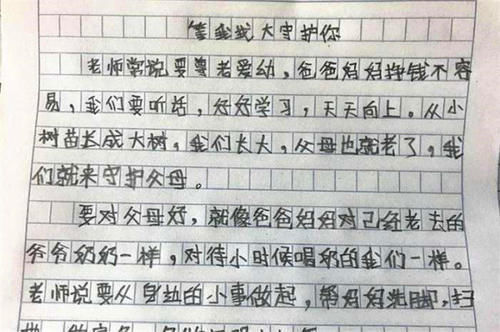 等我长大守护你
老师常说要尊老爱幼，爸爸妈妈挣钱不容
易，我们要听话，好好学习，天天向上。从小
树苗长成大树，我们长大，父母也就老了，我
们就来守护父母。
要对父母好，就像爸爸妈妈对已经老去的
爷爷奶奶一样，对待小时候喝奶的我们一样。
老师说要从身边的小事做起，帮妈妈洗脚，扫